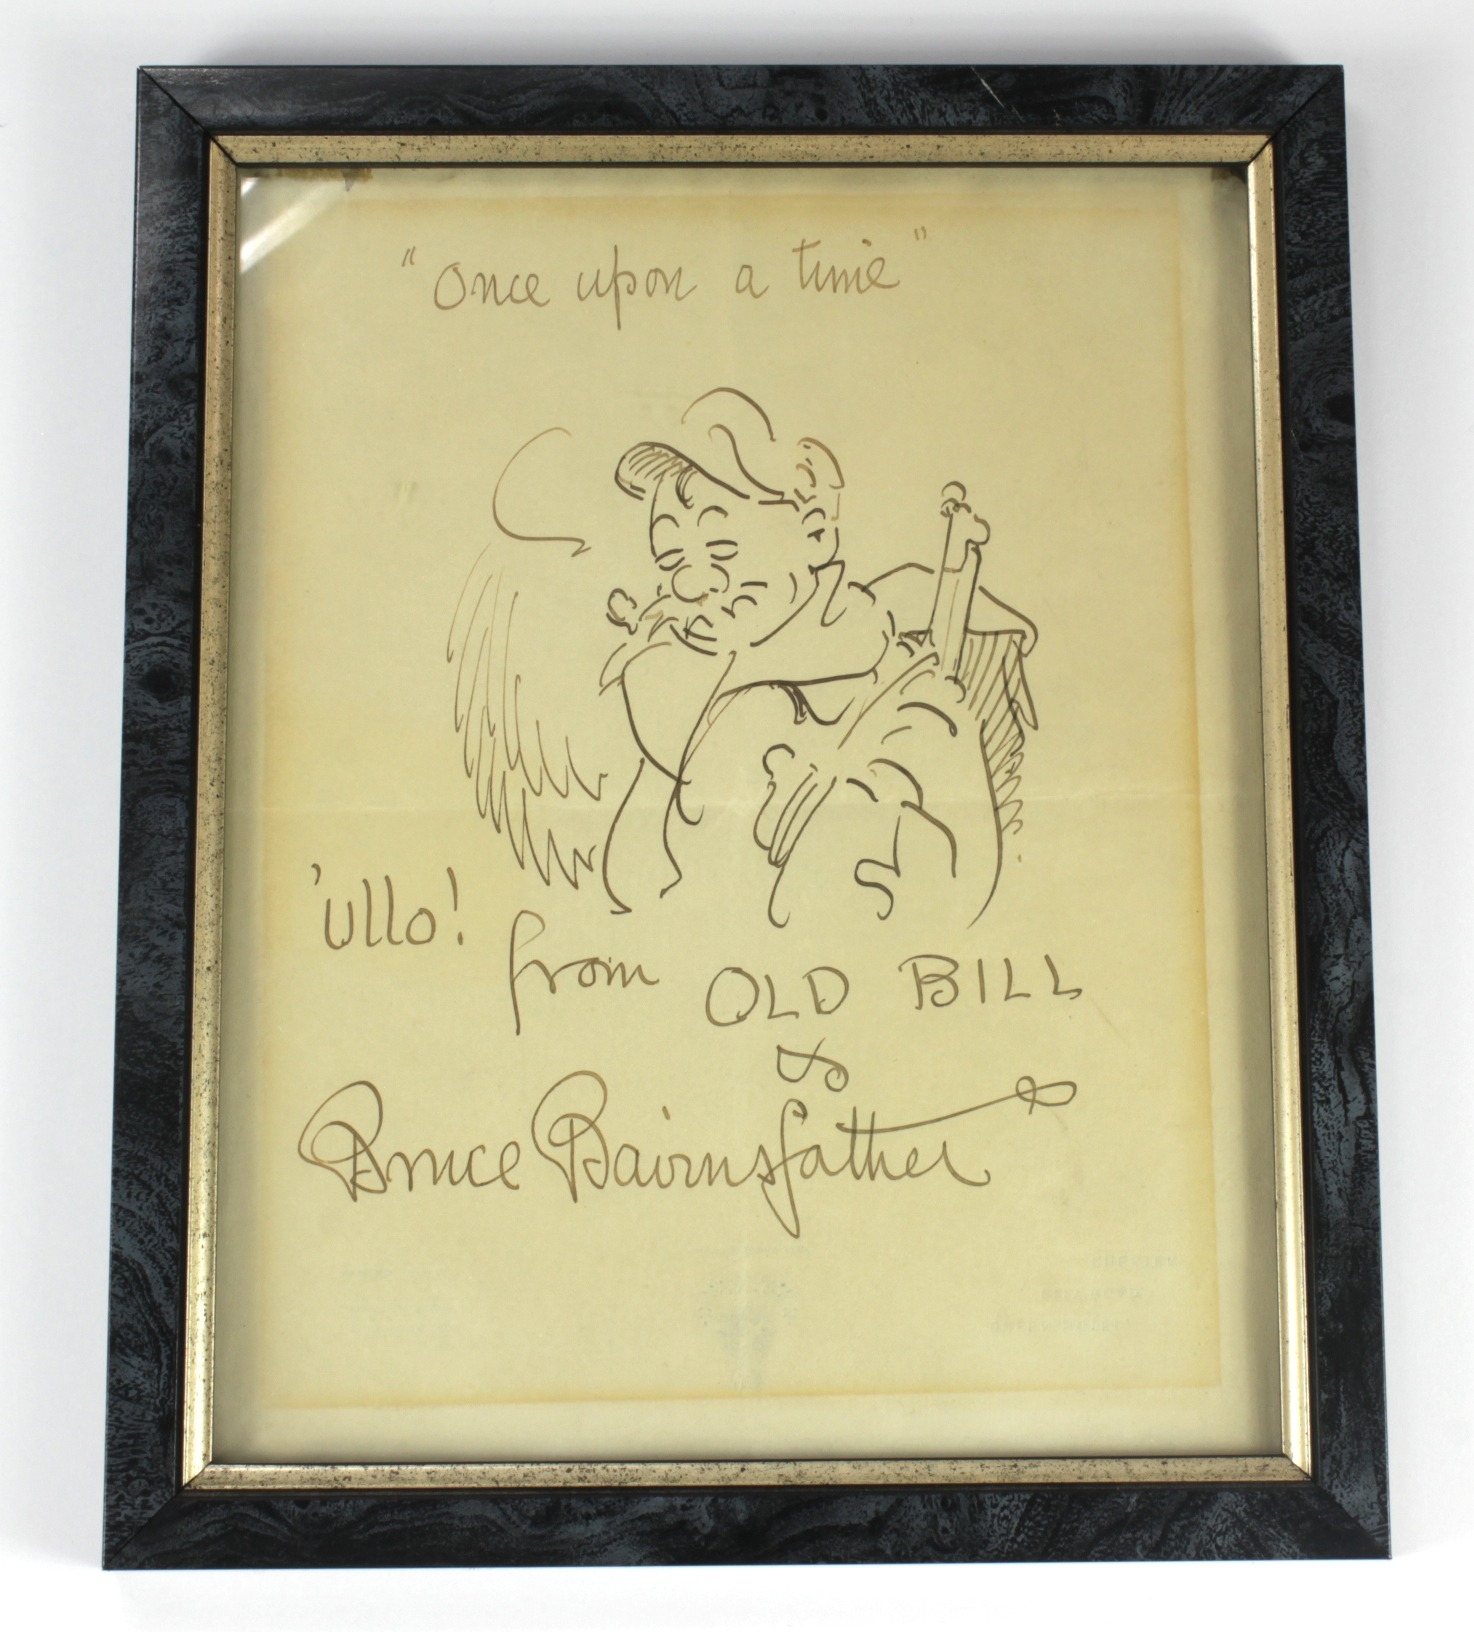 "Once upon a time"
'ullo!
from OLD BILL
&
Bruce Bairnsfather